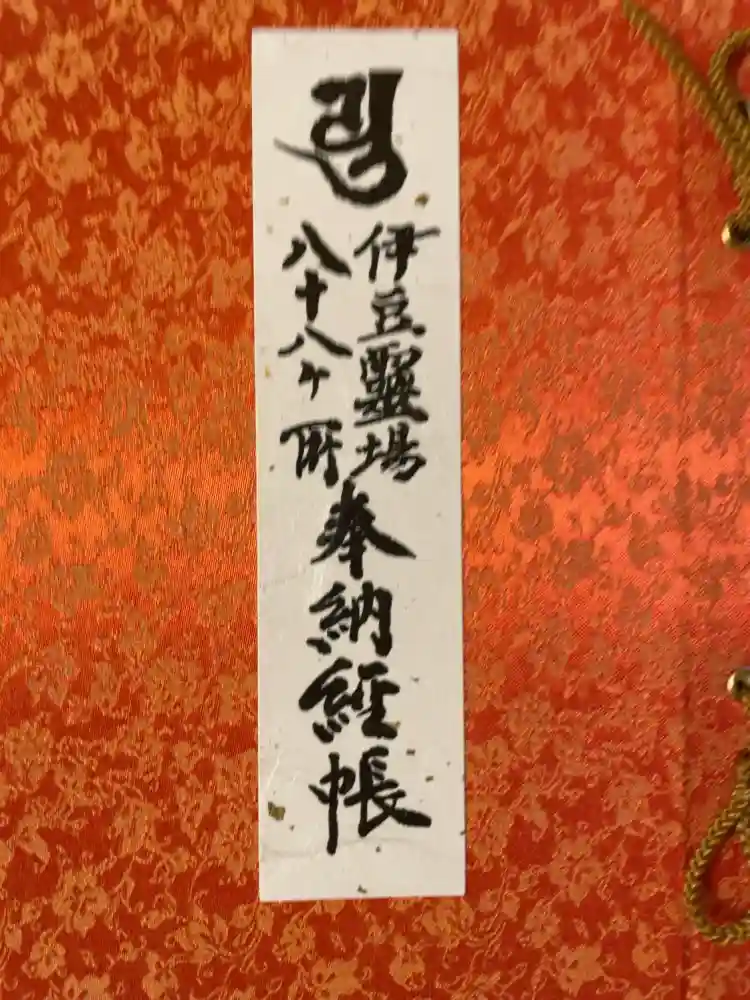 伊豆霊場
八十八ヶ所
奉納経帳